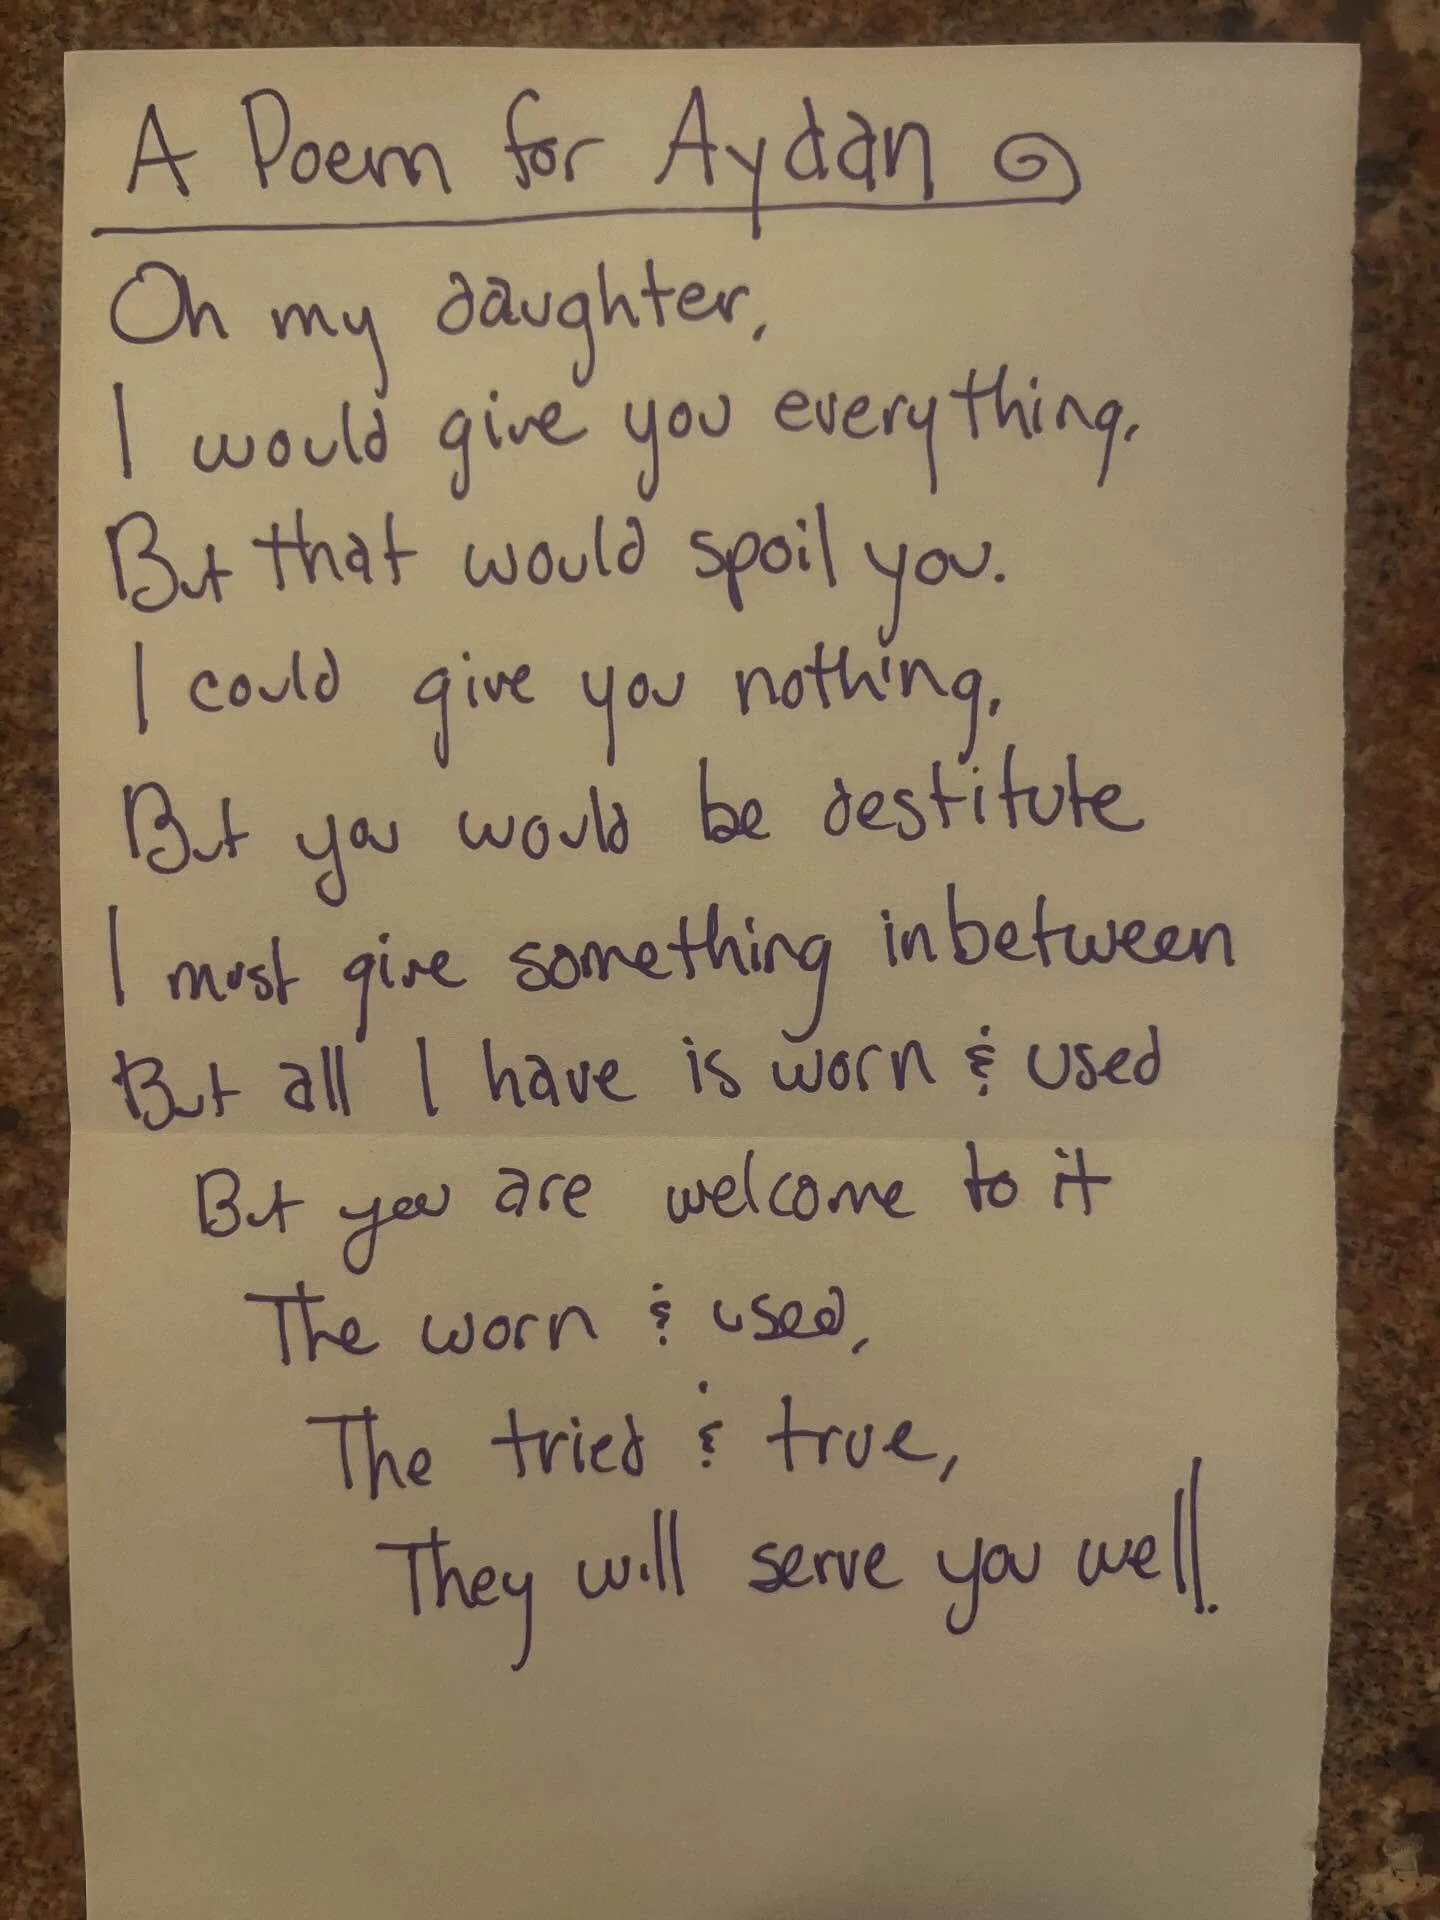 A Poem for Aydan
Oh my daughter,
I would give you everything,
But that would spoil you.
I could give you nothing,
But you would be destitute
I must give something inbetween
But all I have is worn & used
But you are welcome to it
The worn & used,
The tried & true,
They will serve you well.